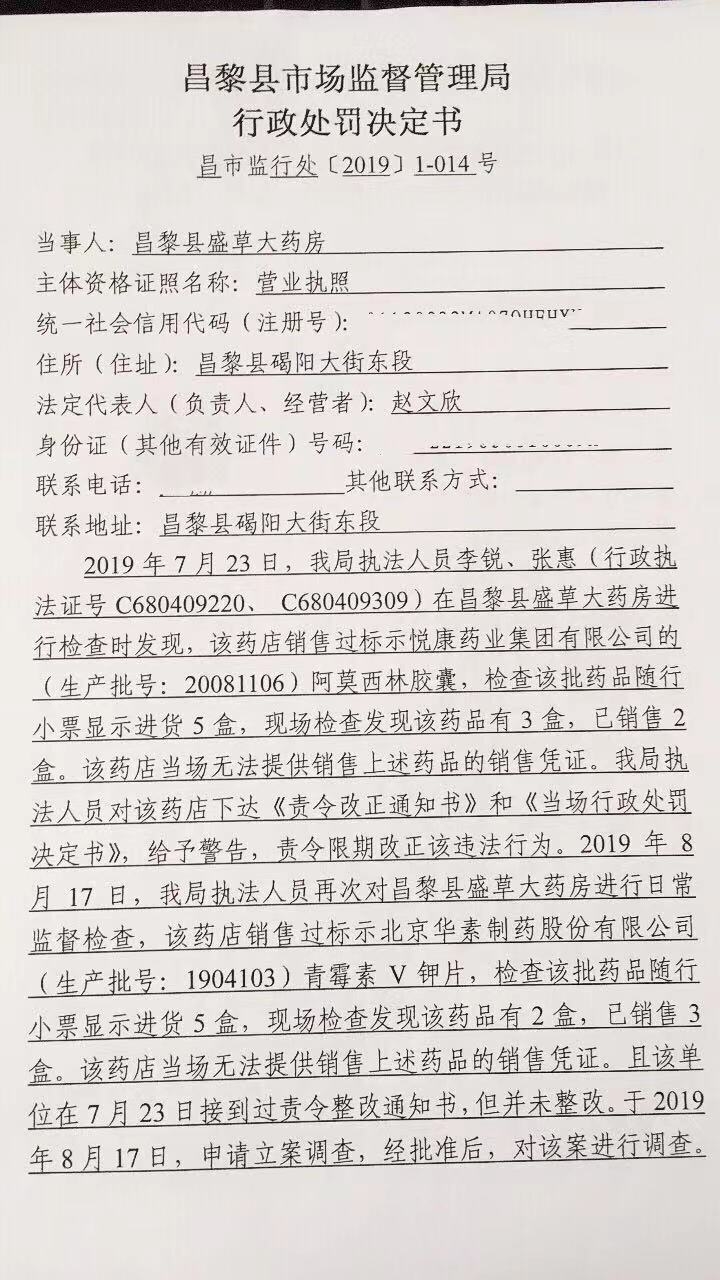 昌黎县市场监督管理局
行政处罚决定书
昌市监行处〔2019〕1-014号
当事人：昌黎县盛草大药房
主体资格证照名称：营业执照
统一社会信用代码（注册号）：
住所（住址）：昌黎县碣阳大街东段
法定代表人（负责人、经营者）：赵文欣
身份证（其他有效证件）号码：
联系电话： 其他联系方式：
联系地址：昌黎县碣阳大街东段
2019 年 7 月 23 日，我局执法人员李锐、张惠（行政执
法证号 C680409220、 C680409309）在昌黎县盛草大药房进
行检查时发现，该药店销售过标示悦康药业集团有限公司的
（生产批号：20081106）阿莫西林胶囊，检查该批药品随行
小票显示进货 5 盒，现场检查发现该药品有 3 盒，已销售 2
盒。该药店当场无法提供销售上述药品的销售凭证。我局执
法人员对该药店下达《责令改正通知书》和《当场行政处罚
决定书》，给予警告，责令限期改正该违法行为。2019 年 8
月 17 日，我局执法人员再次对昌黎县盛草大药房进行日常
监督检查，该药店销售过标示北京华素制药股份有限公司
（生产批号：1904103）青霉素 V 钾片，检查该批药品随行
小票显示进货 5 盒，现场检查发现该药品有 2 盒，已销售 3
盒。该药店当场无法提供销售上述药品的销售凭证。且该单
位在 7 月 23 日接到过责令整改通知书，但并未整改。于 2019
年 8 月 17 日，申请立案调查，经批准后，对该案进行调查。